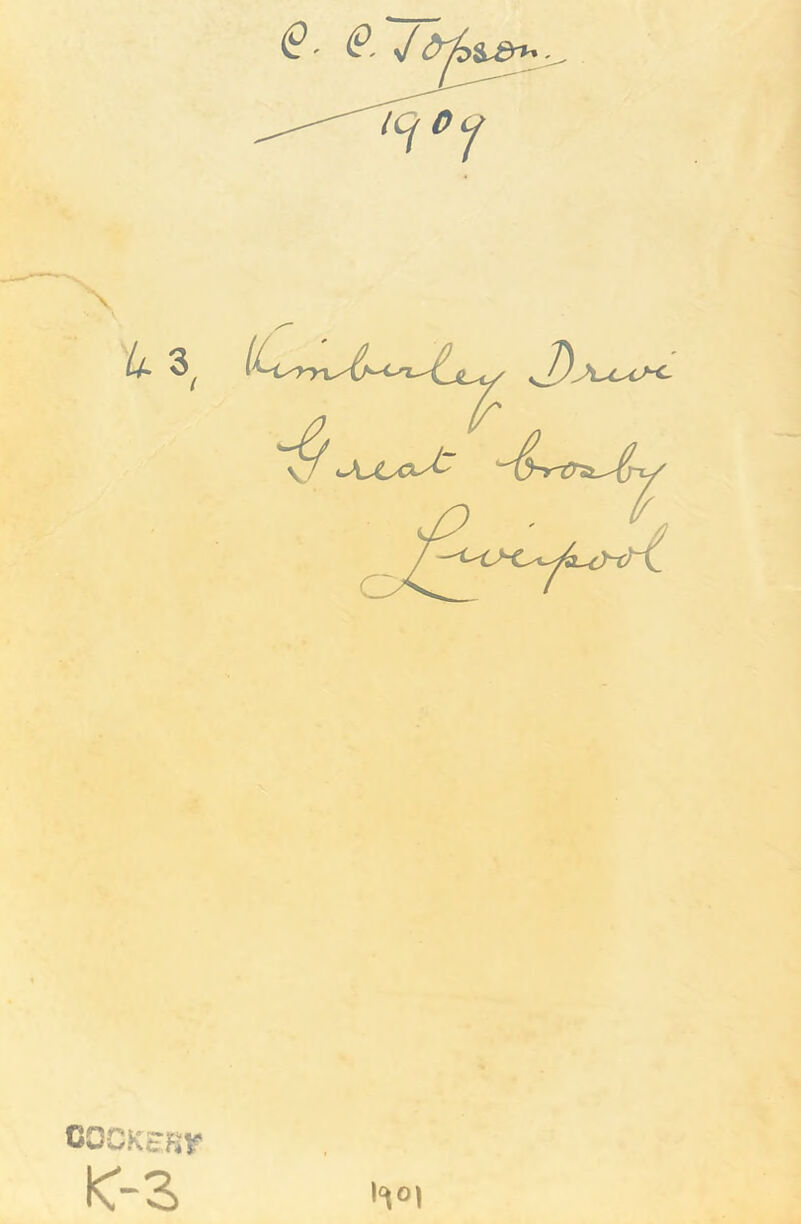 C. C. Topson.
1909
43, Kimberley Drive
Great Crosby
Liverpool
COOKERY
K-3
1901